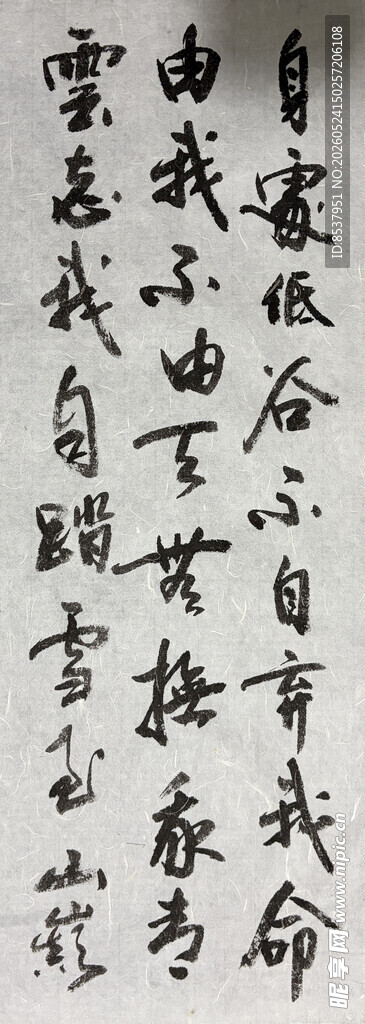 身處低谷不自弃我命
由我不由天無撫我青
雲志我自踏雪至山巔
ID:8537951 NO:20260524150257206108
昵享网 www.nipic.cn